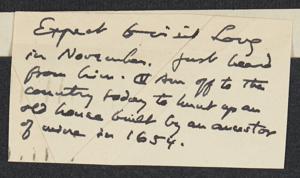 Expect to visit Long
in November. Just heard
from him. Am off to the
country today to hunt up an
old house built by an ancestor
of mine in 1654.